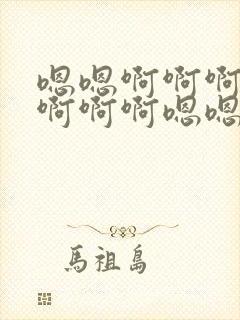 嗯嗯啊啊啊
啊啊啊嗯嗯
馬祖島